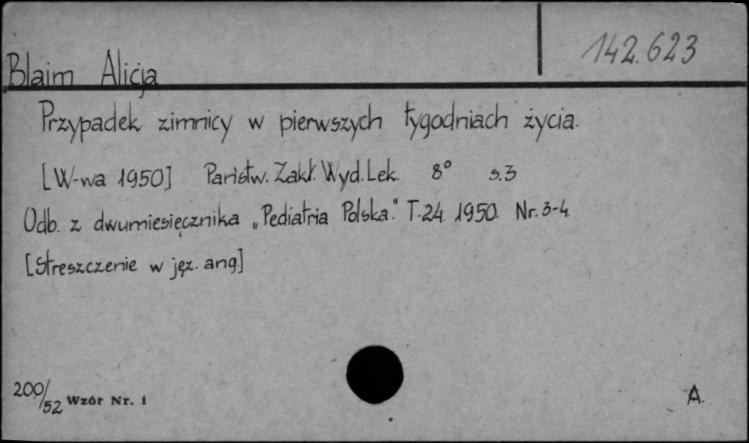 142.623
Blaim Alicja
Przypadek zimnicy w pierwszych tygodniach życia.
[W-wa 1950] Państw. Zakł. Wyd. Lek. 8° s.3
Odb. z dwumiesięcznika „Pediatria Polska." T.24. 1950. Nr. 3-4.
[Streszczenie w jęz. ang.]
200/52 Wzór Nr. 1
A.